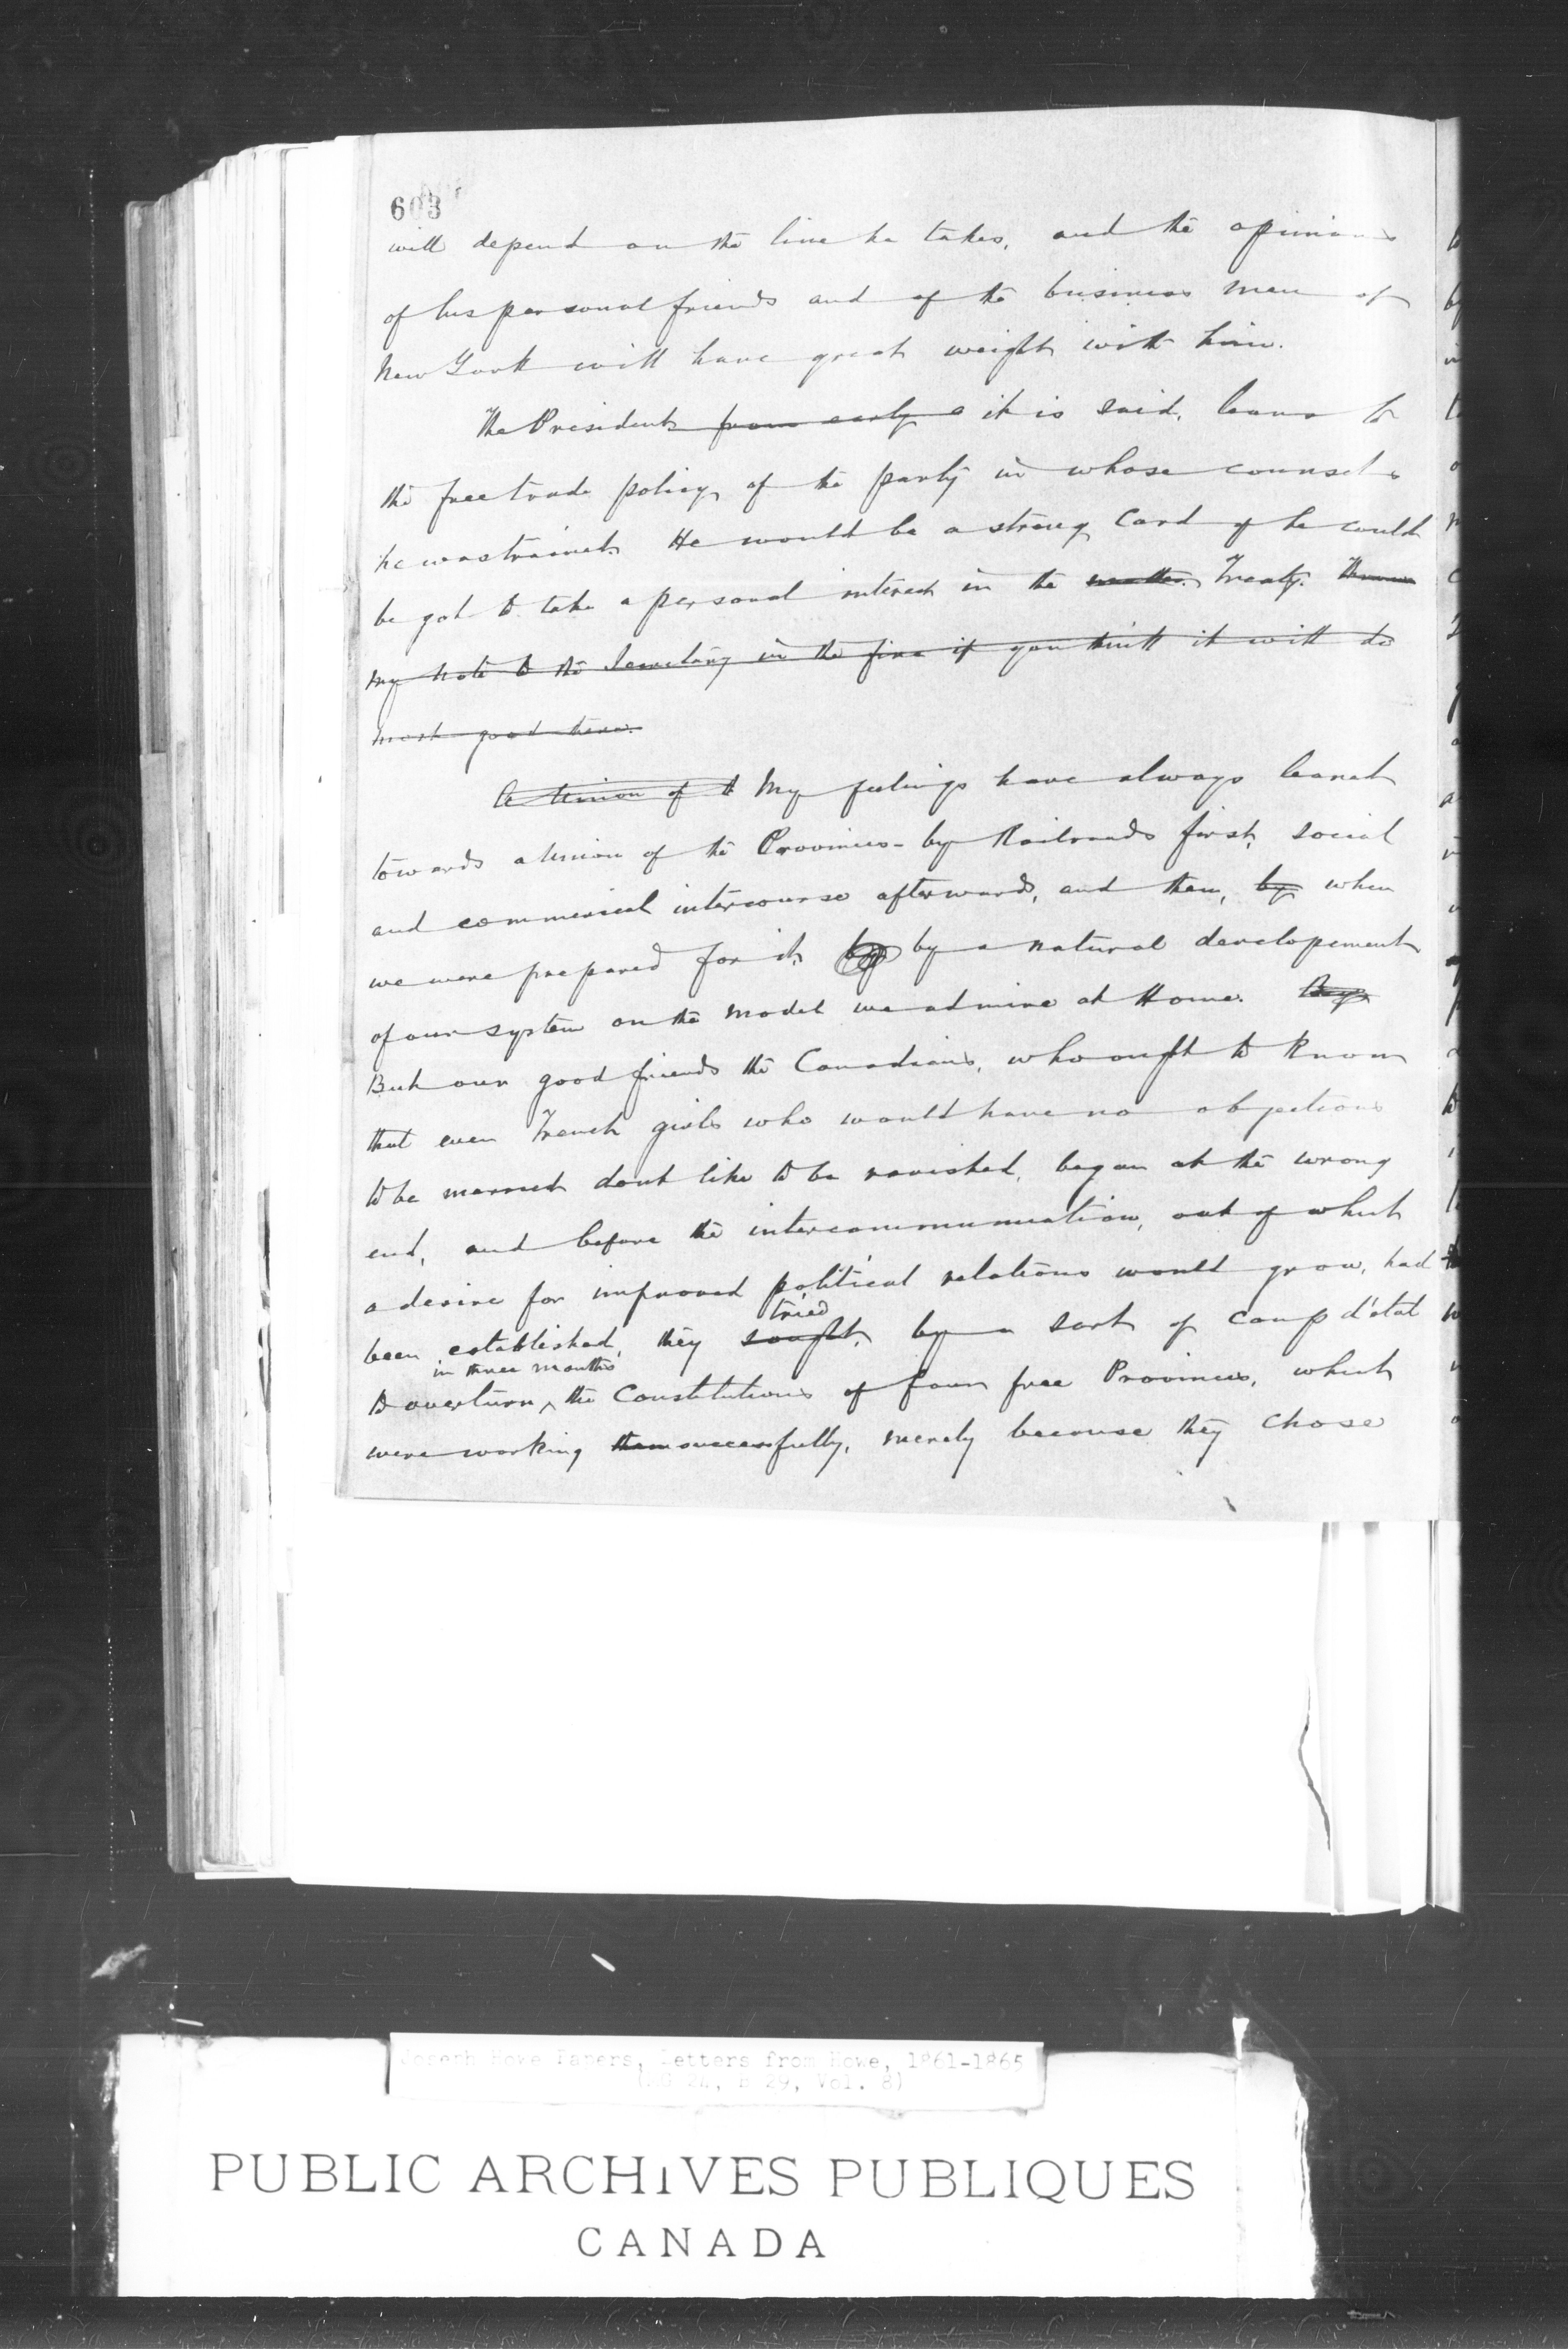 603
will depend on the line he takes, and the opinions
of his personal friends and of the business men of
New York will have great weight with him.
The President from early it is said, leans to
the free trade policy of the party in whose counsels
he was trained. He would be a strong card if he could
be got to take a personal interest in the matter. Treaty. Throw
my note to the Secretary in the fire if you think it will do
most good there.
A Union of th My feelings have always leaned
towards a Union of the Provinces - by Railroads first, social
and commercial intercourse afterwards, and then, by when
we were prepared for it, by by a natural developement
of our system on the model we admire at Home.
But our good friends the Canadians, who ought to know
that even French girls who would have no objections
to be married dont like to be ravished, began at the wrong
end, and before the intercommunication, out of which
a desire for improved political relations would grow, had
tried
been established, they sought, by a sort of coup d'etat
in three months
to overturn ^ the Constitutions of four free Provinces, which
were working them successfully, merely because they chose
Joseph Howe Papers, Letters from Howe, 1861-1865
(MG 24, B 29, Vol. 8)
PUBLIC ARCHIVES PUBLIQUES
CANADA